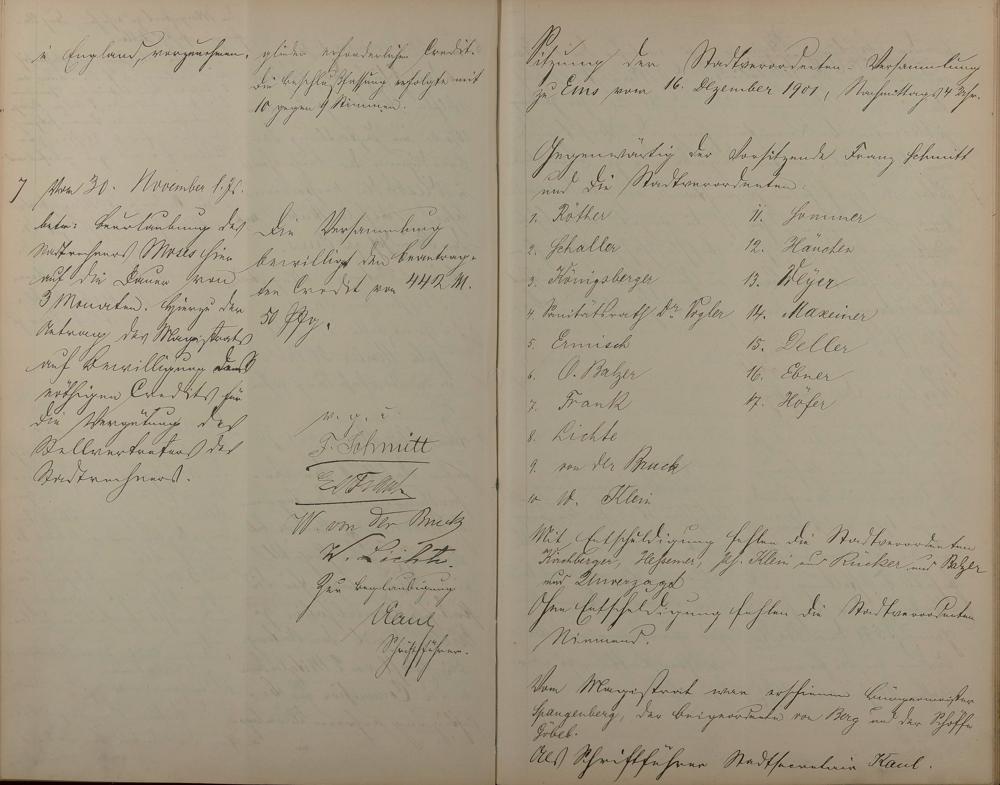 in England, vorzunehmen.
glieder erforderlichen Credits
die Beschlußfassung erfolgte mit
10 gegen 9 Stimmen.
7 Vom 30. November l. Js.
betr: Beurlaubung des
Stadtrechners Moses hier
auf die Dauer von
3 Monaten. Hierzu der
Antrag des Magistrats
auf Bewilligung des
nöthigen Credits für
die Vergütung des
Stellvertreters des
Stadtrechners.
Die Versammlung
bewilligt den beantrag-
ten Credit von 442 M.
50 Pfg.
v. g. u.
F. Schmitt
W. von der Bruck
W. Lichte.
Zur Beglaubigung
Kaul
Schriftführer.
Sitzung der Stadtverordneten-Versammlung
zu Ems vom 16. Dezember 1901, Nachmittags 4 Uhr.
Gegenwärtig der Vorsitzende Franz Schmitt
und die Stadtverordneten:
1. Röther
2. Schaller
3. Königsberger
4. Sanitätsrath Dr. Vogler
5. Ermisch
6. O. Balzer
7. Frank
8. Lichte
9. von der Bruck
10 W. Klein
11. Sommer
12. Hänchen
13. Weyer
14. Maxeiner
15. Deller
16. Ebner
17. Höfer
Mit Entschuldigung fehlen die Stadtverordneten
Kirchberger, Hessemer, Jos. Klein und Rücker und Balzer
und Unverzagt
Ohne Entschuldigung fehlen die Stadtverordneten
Niemand.
Vom Magistrat war erschienen Bürgermeister
Spangenberg, der Beigeordnete von Berg und der Schöffe
Göbel.
Als Schriftführer Stadtsecretair Kaul.